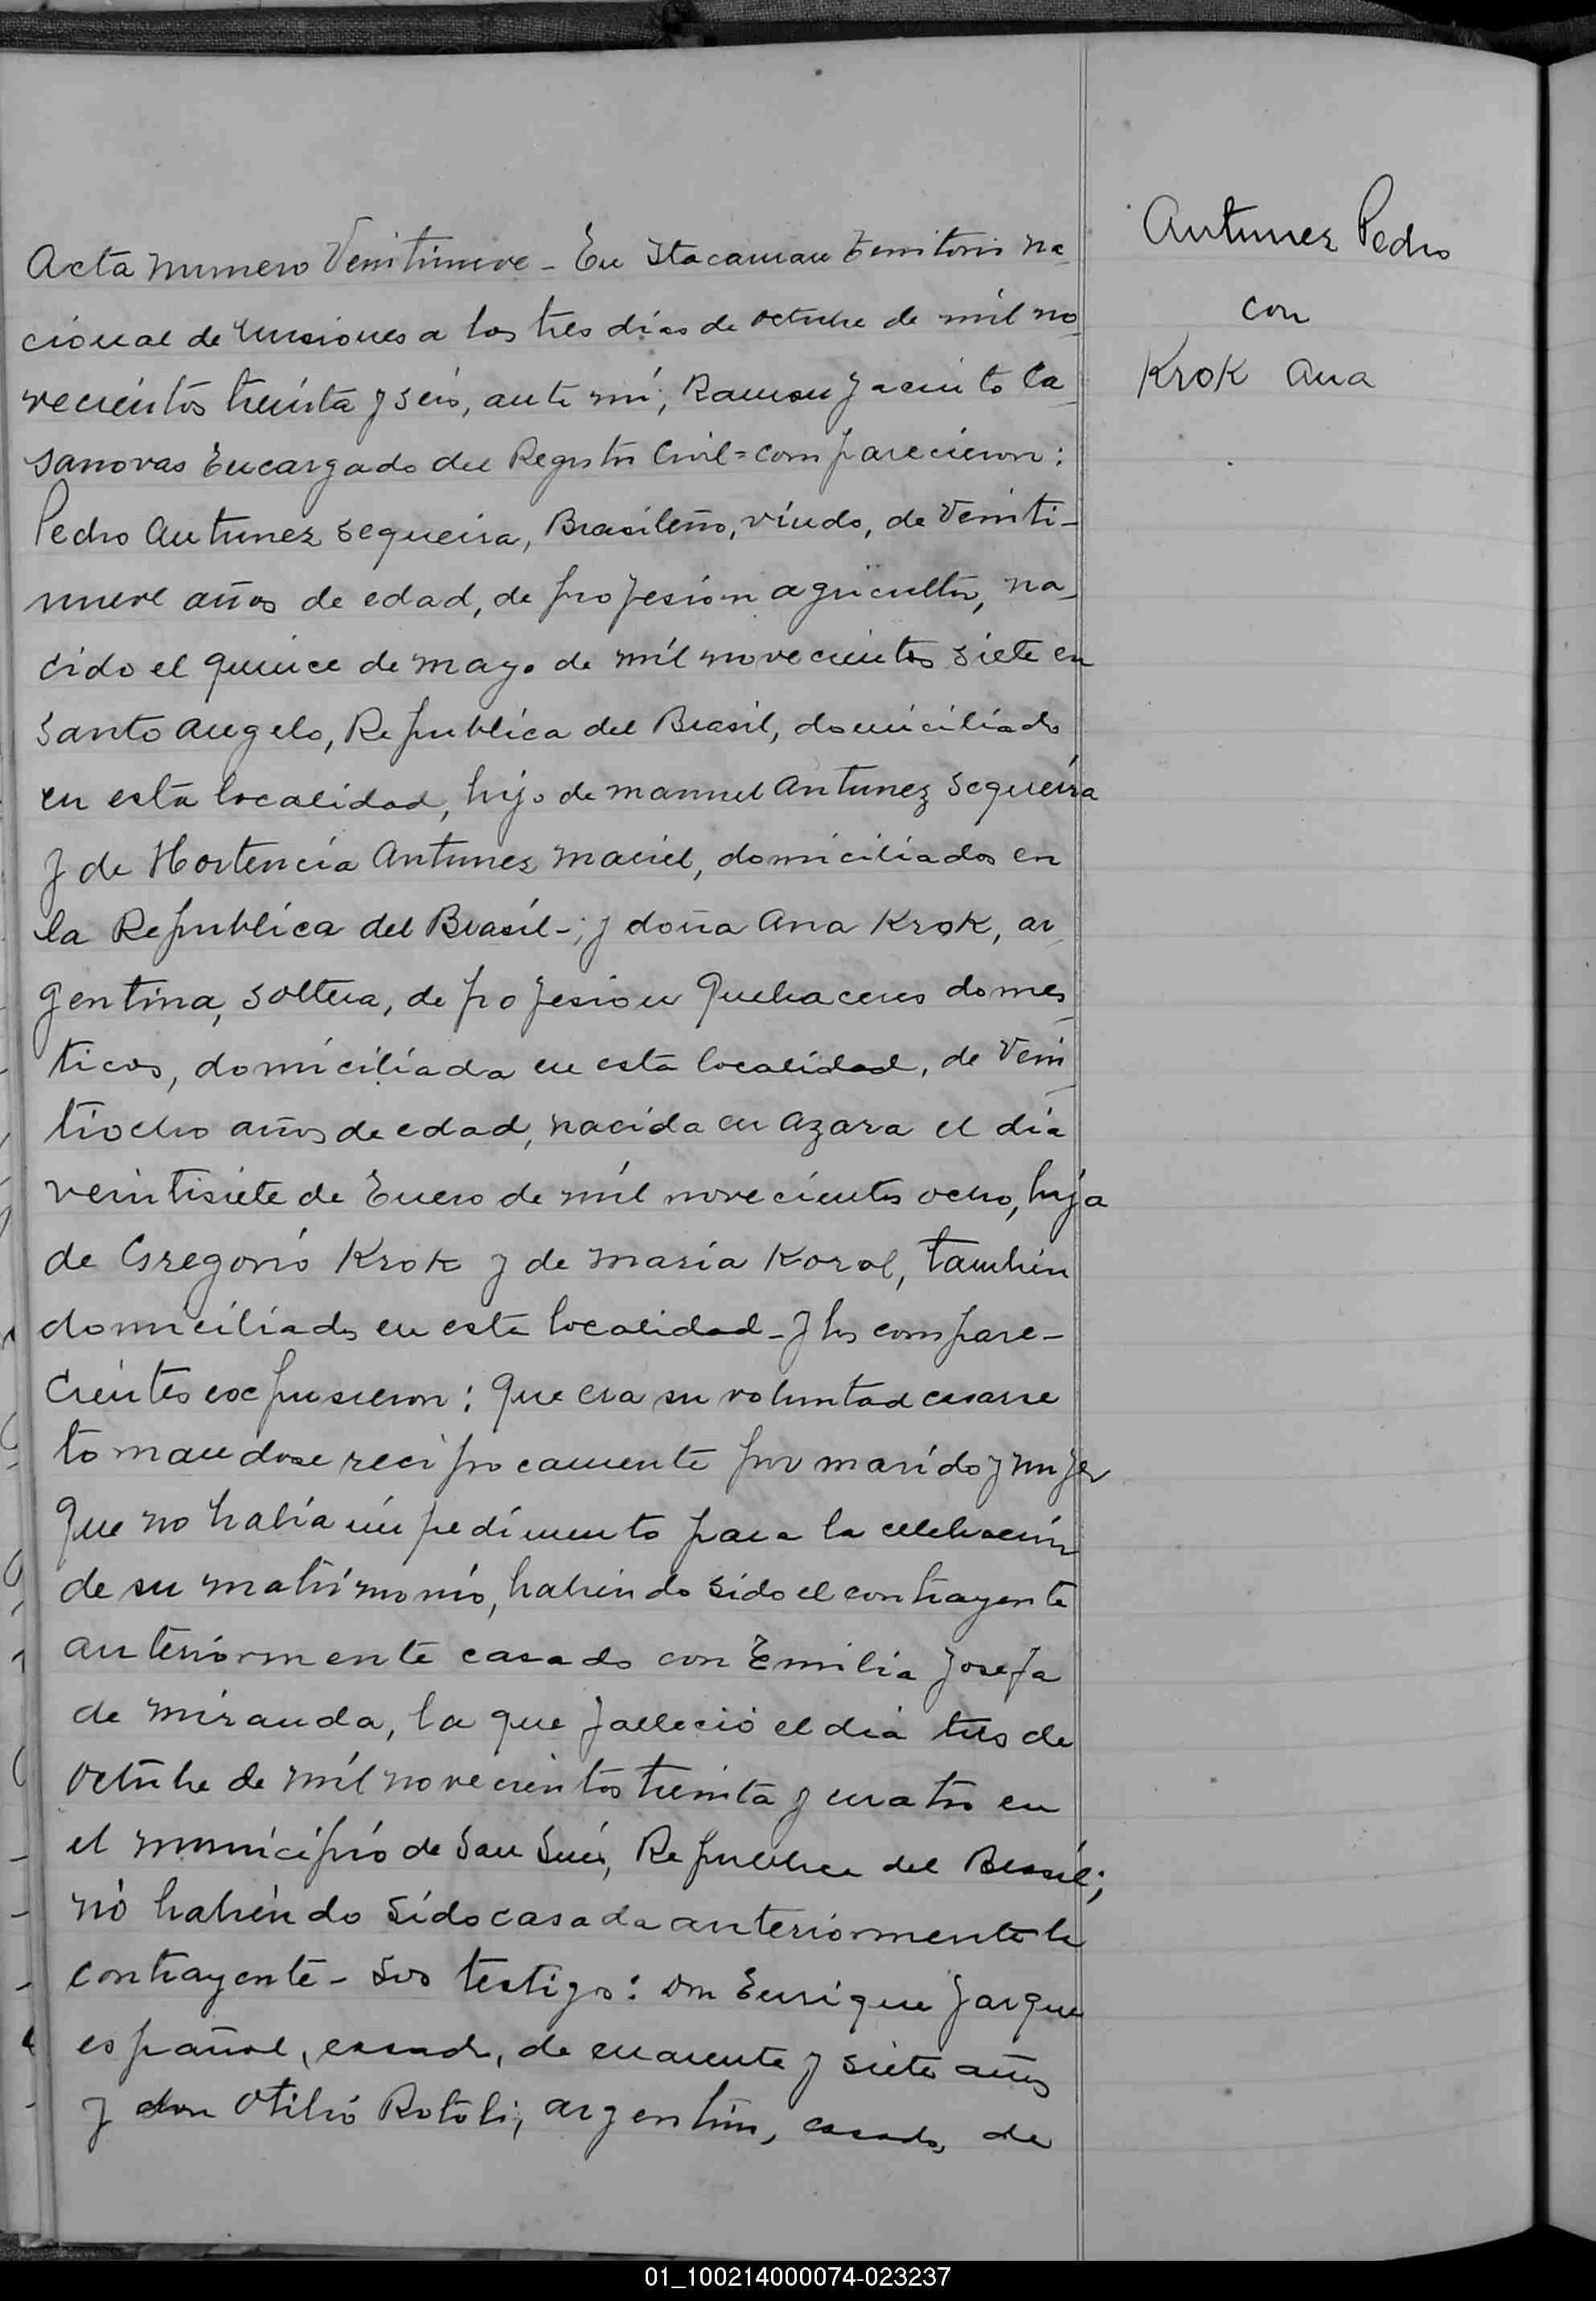 Acta numero Veintinueve - En Itacaruare Territorio na_
cional de Misiones a los tres días de octubre de mil no_
vecientos treinta y seis, ante mí, Ramon Jacinto Ca_
sanovas Encargado del Registro Civil = comparecieron:
Pedro Antunez Sequeira, Brasileño, viudo, de Veinti-
nueve años de edad, de profesión agricultor, na_
cido el quince de mayo de mil novecientos siete en
Santo Angelo, Republica del Brasil, domiciliado
en esta localidad, hijo de manuel Antunez Sequeira
y de Hortencia Antunez Maciel, domiciliados en
la Republica del Brasil-; y doña Ana Krok, ar_
gentina, soltera, de profesion Quehaceres domes_
ticos, domiciliada en esta localidad, de Vein_
tiocho años de edad, nacida en Azara el día
veintisiete de Enero de mil novecientos ocho, hija
de Gregorio Krok y de María Korol, tambien
domiciliados en esta localidad - y los compare-
cientes expusieron: Que era su voluntad casarse
tomandose reciprocamente por marido y mujer
Que no había impedimento para la celebración
de su matrimonio, habiendo sido el contrayente
anteriormente casado con Emilia Josefa
de Miranda, la que falleció el día tres de
octubre de mil novecientos treinta y cuatro en
el municipio de San Luis, Republica del Brasil;
no habiendo sido casada anteriormente la
contrayente - Sus testigos: Don Enrique Jarque
español, casado, de cuarenta y siete años
y don Otilio Rotoli, argentino, casado, de
Antunez Pedro
con
Krok Ana
01_100214000074-023237